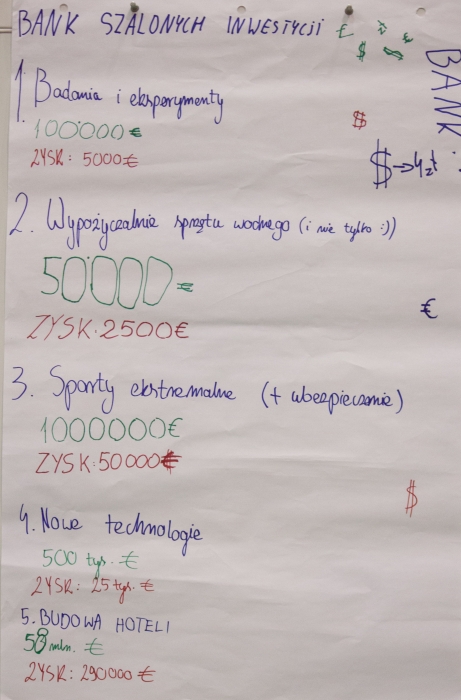 BANK SZALONYCH INWESTYCJI €
$
BANK
1. Badania i eksperymenty
100000 €
ZYSK: 5000€
$
$→4zł
2. Wypożyczalnie sprzętu wodnego (i nie tylko :))
50000 €
ZYSK: 2500€
€
3. Sporty ekstremalne (+ ubezpieczenie)
1000000€
ZYSK: 50000€
$
4. Nowe technologie
500 tyś. €
ZYSK: 25 tyś. €
5. BUDOWA HOTELI
58 mln. €
ZYSK: 290000 €